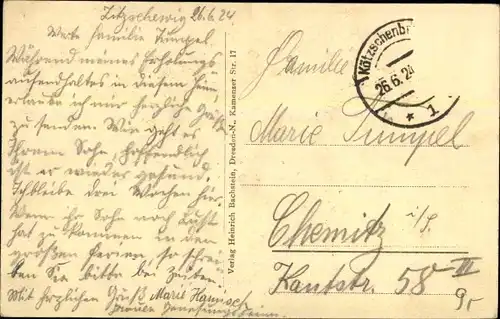 Zitzschewig 26.6.24
Werte Familie Timpel.
Während meines Erholungs
aufenthaltes in diesem Heim
erlaube ich mir herzliche Grüße
zu senden. Wie geht es
Ihrem Sohn, hoffendlich
ist er wieder gesund.
Ich bleibe drei Wochen hier.
Wenn ihr Sohn noch Lust
hat zu kommen in den
großen Ferien, so schrei
ben Sie bitte bei Zeiten.
Mit herzlichen Gruß Marie
Genesungsheim
Verlag Heinrich Bachstein, Dresden-N., Kamenzer Str. 17
Kötzschenbr
26.6.24
* 1
Familie
Marie Timpel
Chemnitz i/S.
Kantstr. 58 III